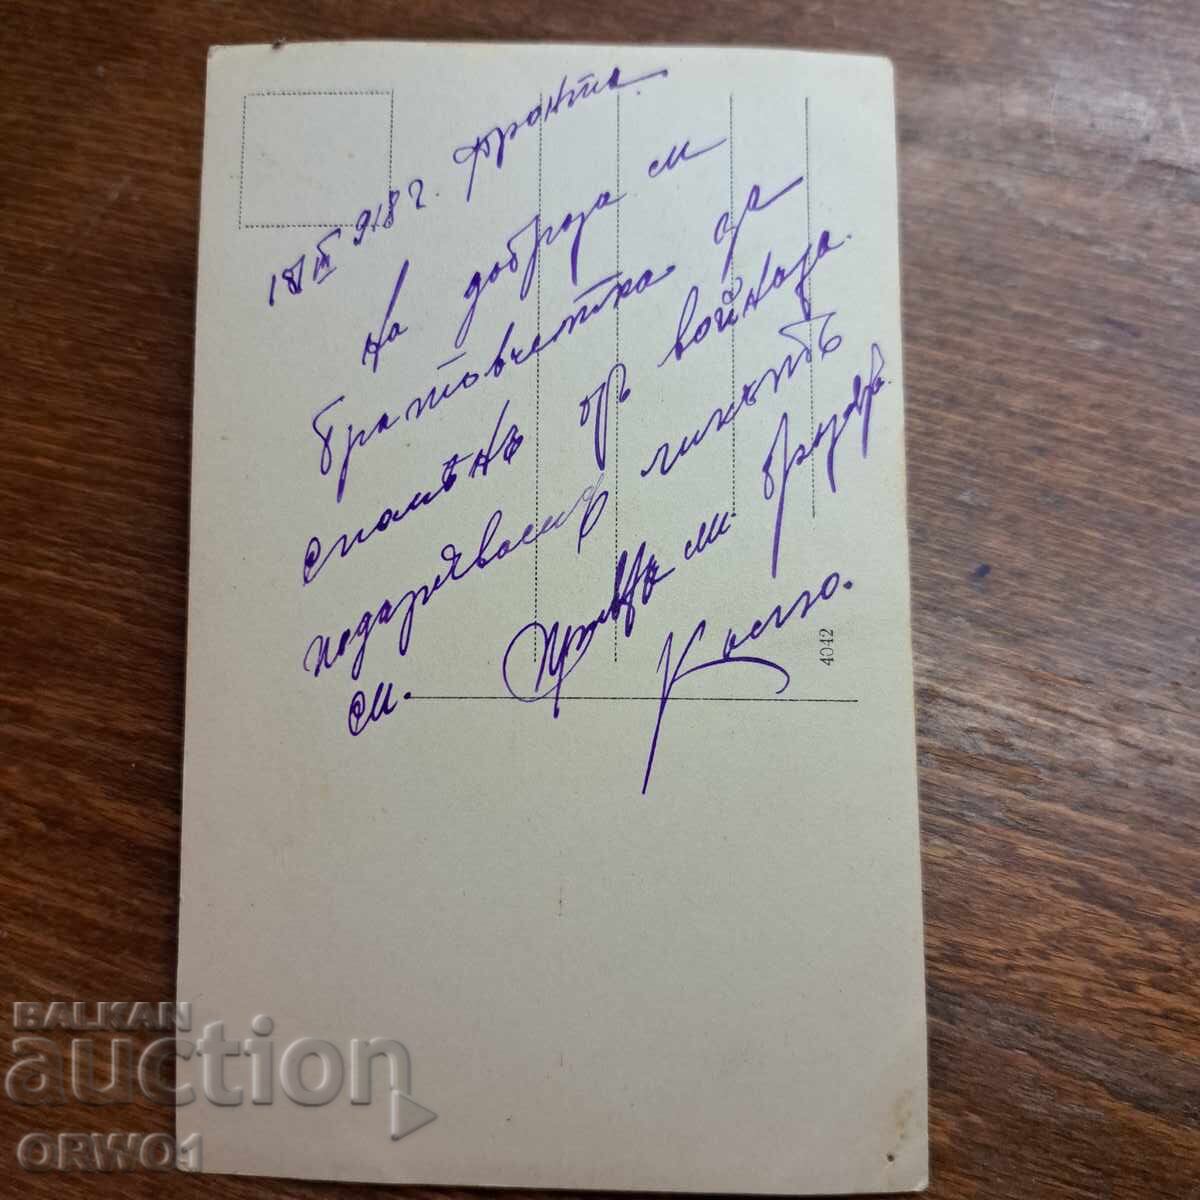 18/III 918 г. фронта.
На добраза си
братовчетка за
споменъ отъ войназа.
подарявамъ ликътъ
си.
Костю.
4042
BALKAN
auction
ORWO1